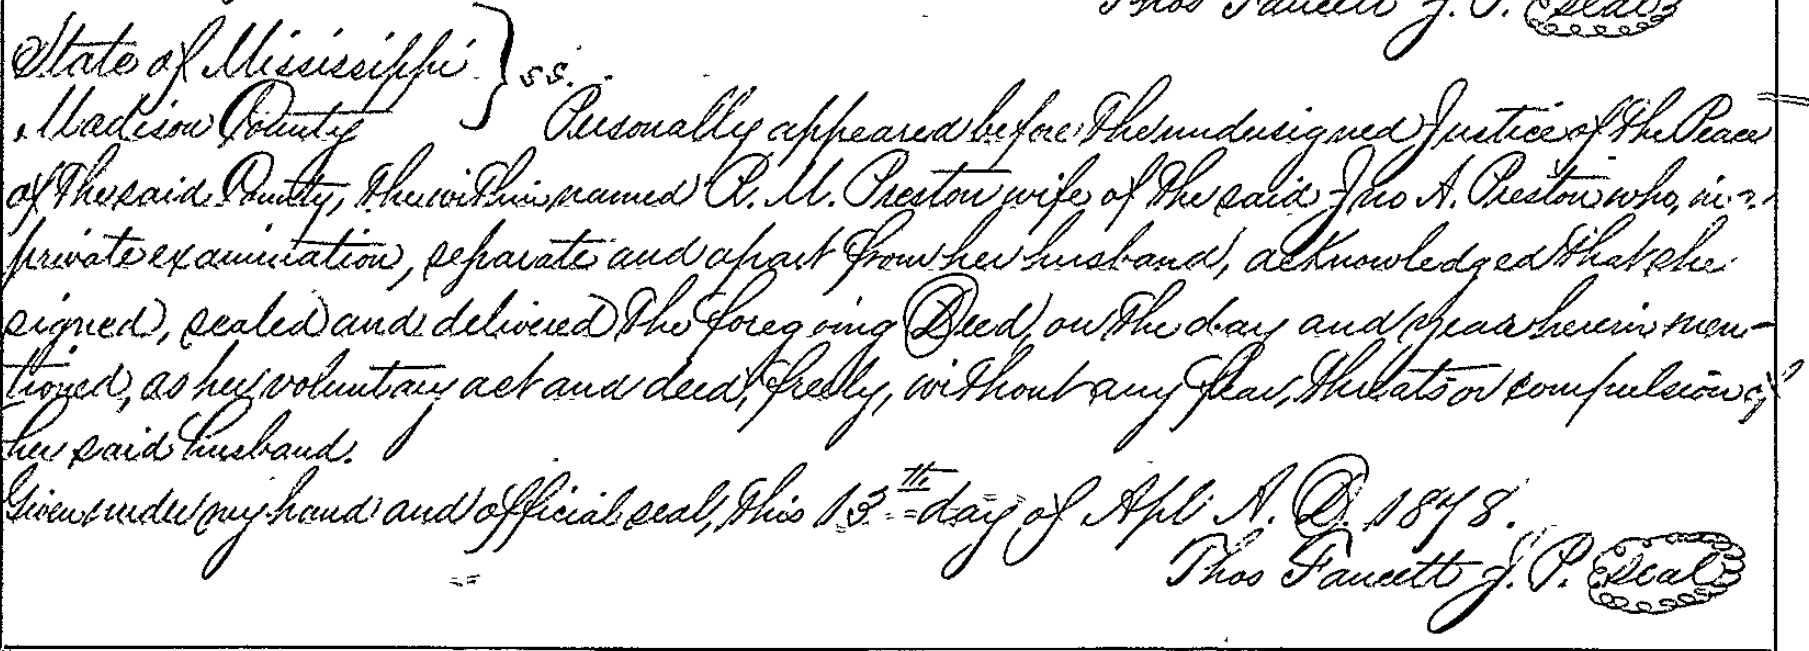 Thos Faucett J. P. Seal
State of Mississippi } ss.
Madison County Personally appeared before the undersigned Justice of the Peace
of the said County, the within named R. M. Preston wife of the said Jno A. Preston who, in a
private examination, separate and apart from her husband, acknowledged that she
signed, sealed and delivered the foregoing Deed, on the day and year herein men-
tioned, as her voluntary act and deed, freely, without any fear, threats or compulsion of
her said husband.
Given under my hand and official seal, this 13th day of Apl A. D. 1878.
Thos Faucett J. P. Seal